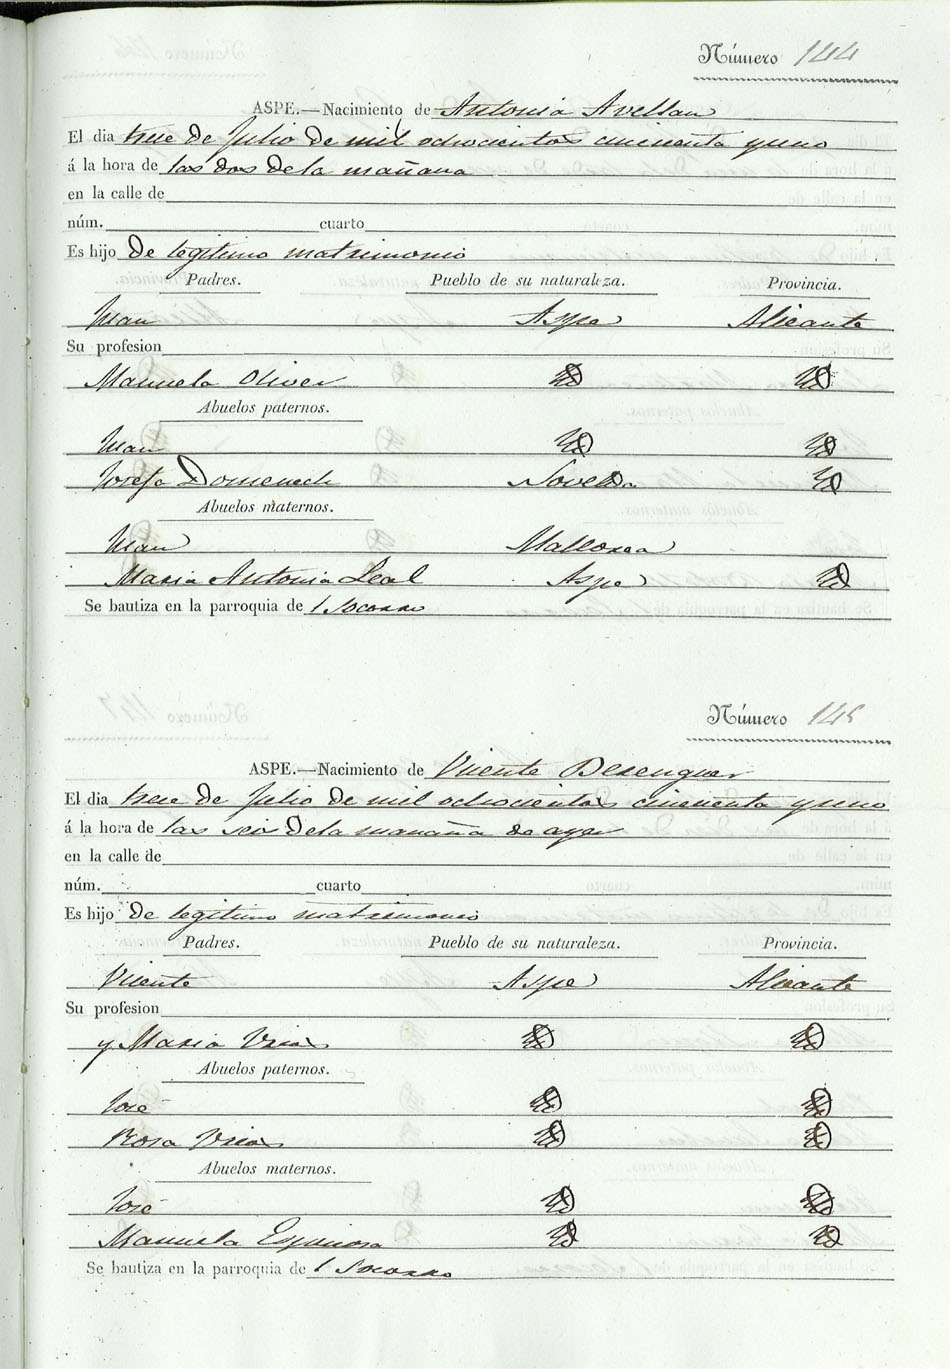 Número 144
ASPE.—Nacimiento de Antonia Avellan
El dia trece de Julio de mil ochocientos cincuenta y uno
á la hora de las dos de la mañana
en la calle de
núm. cuarto
Es hijo de legitimo matrimonio
Padres. Pueblo de su naturaleza. Provincia.
Juan Aspe Alicante
Su profesion
Manuela Oliver Yd Yd
Abuelos paternos.
Juan Yd Yd
Josefa Domenech Novelda Yd
Abuelos maternos.
Juan Mallorca
Maria Antonia Leal Aspe Yd
Se bautiza en la parroquia de l Socorro
Número 145
ASPE.—Nacimiento de Vicente Berenguer
El dia trece de Julio de mil ochocientos cincuenta y uno
á la hora de las seis de la manaña de ayer
en la calle de
núm. cuarto
Es hijo de legitimo matrimonio
Padres. Pueblo de su naturaleza. Provincia.
Vicente Aspe Alicante
Su profesion
y Maria Urios Yd Yd
Abuelos paternos.
José Yd Yd
Rosa Urios Yd Yd
Abuelos maternos.
José Yd Yd
Manuela Espinosa Yd Yd
Se bautiza en la parroquia de l Socorro